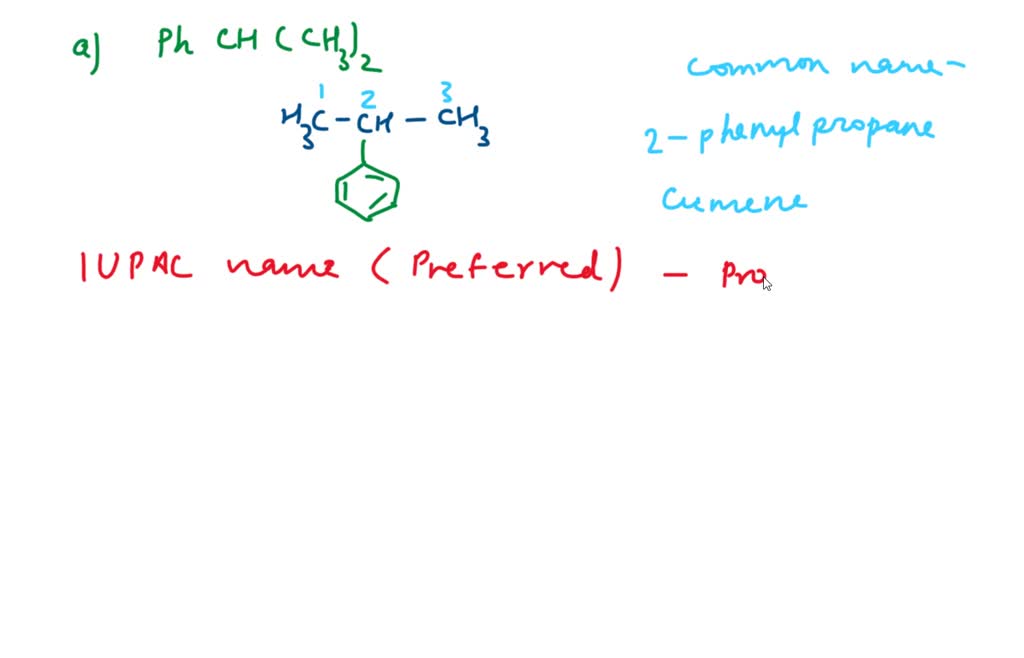 a) Ph CH (CH3)2
common name-
1 2 3
H3C - CH - CH3
2- phenyl propane
Cumene
IUPAC name (Preferred) - Pro